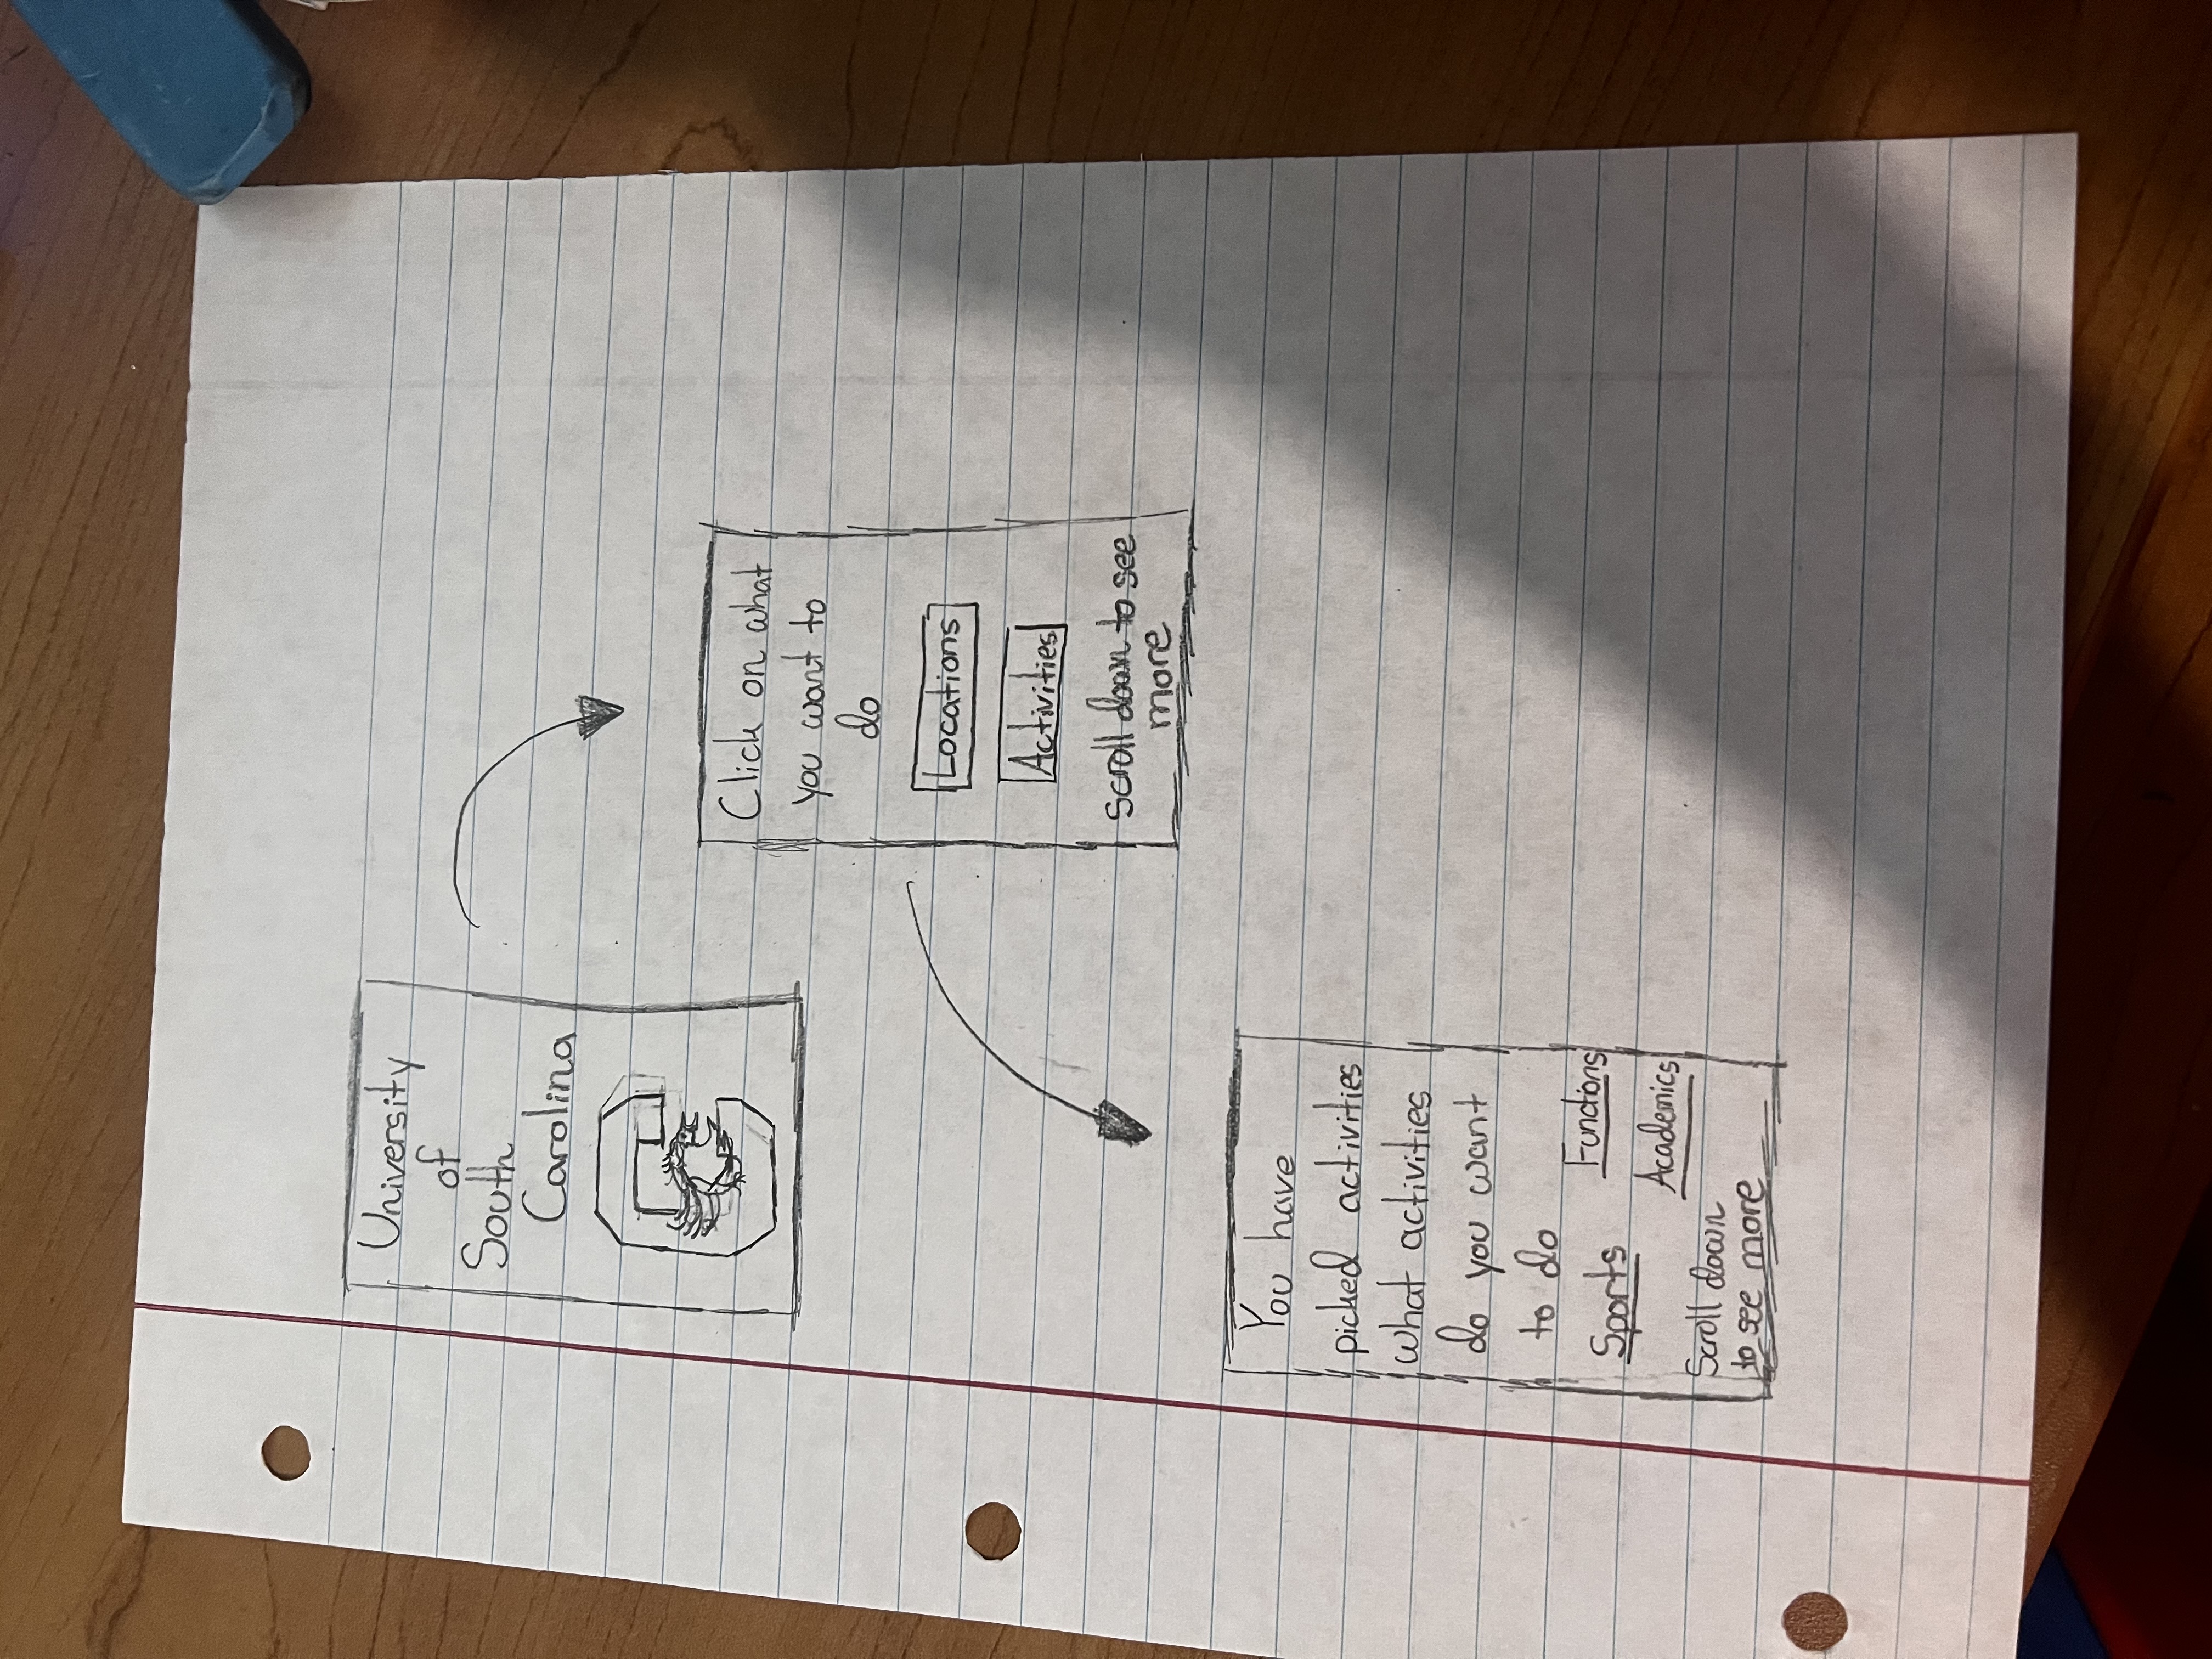 University
of
South
Carolina
Click on what
you want to
do
Locations
Activities
scroll down to see
more
You have
picked activities
what activities
do you want
to do
Functions
Sports
Academics
Scroll down
to see more